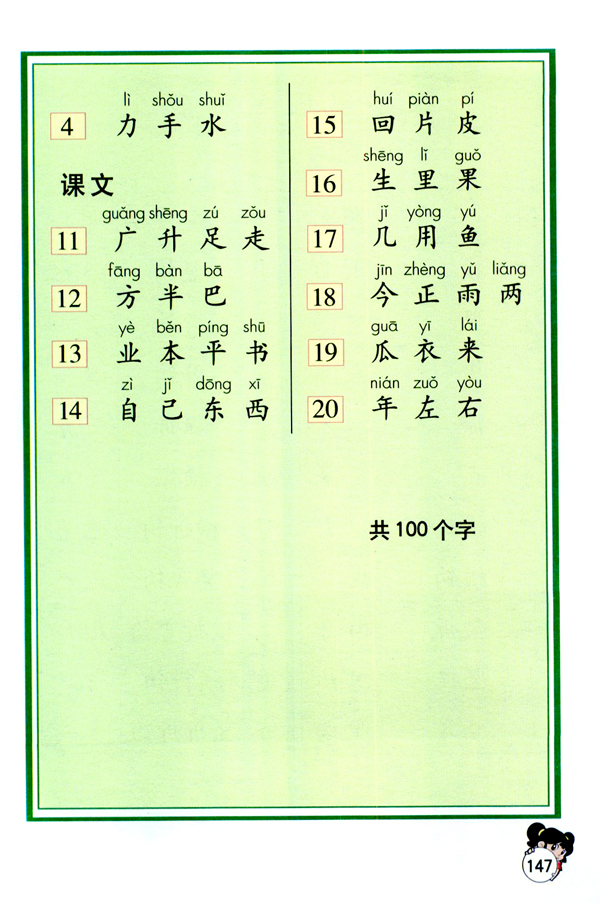 lì shǒu shuǐ
4 力 手 水
课文
guǎng shēng zú zǒu
11 广 升 足 走
fāng bàn bā
12 方 半 巴
yè běn píng shū
13 业 本 平 书
zì jǐ dōng xī
14 自 己 东 西
huí piàn pí
15 回 片 皮
shēng lǐ guǒ
16 生 里 果
jǐ yòng yú
17 几 用 鱼
jīn zhèng yǔ liǎng
18 今 正 雨 两
guā yī lái
19 瓜 衣 来
nián zuǒ yòu
20 年 左 右
共 100 个字
147